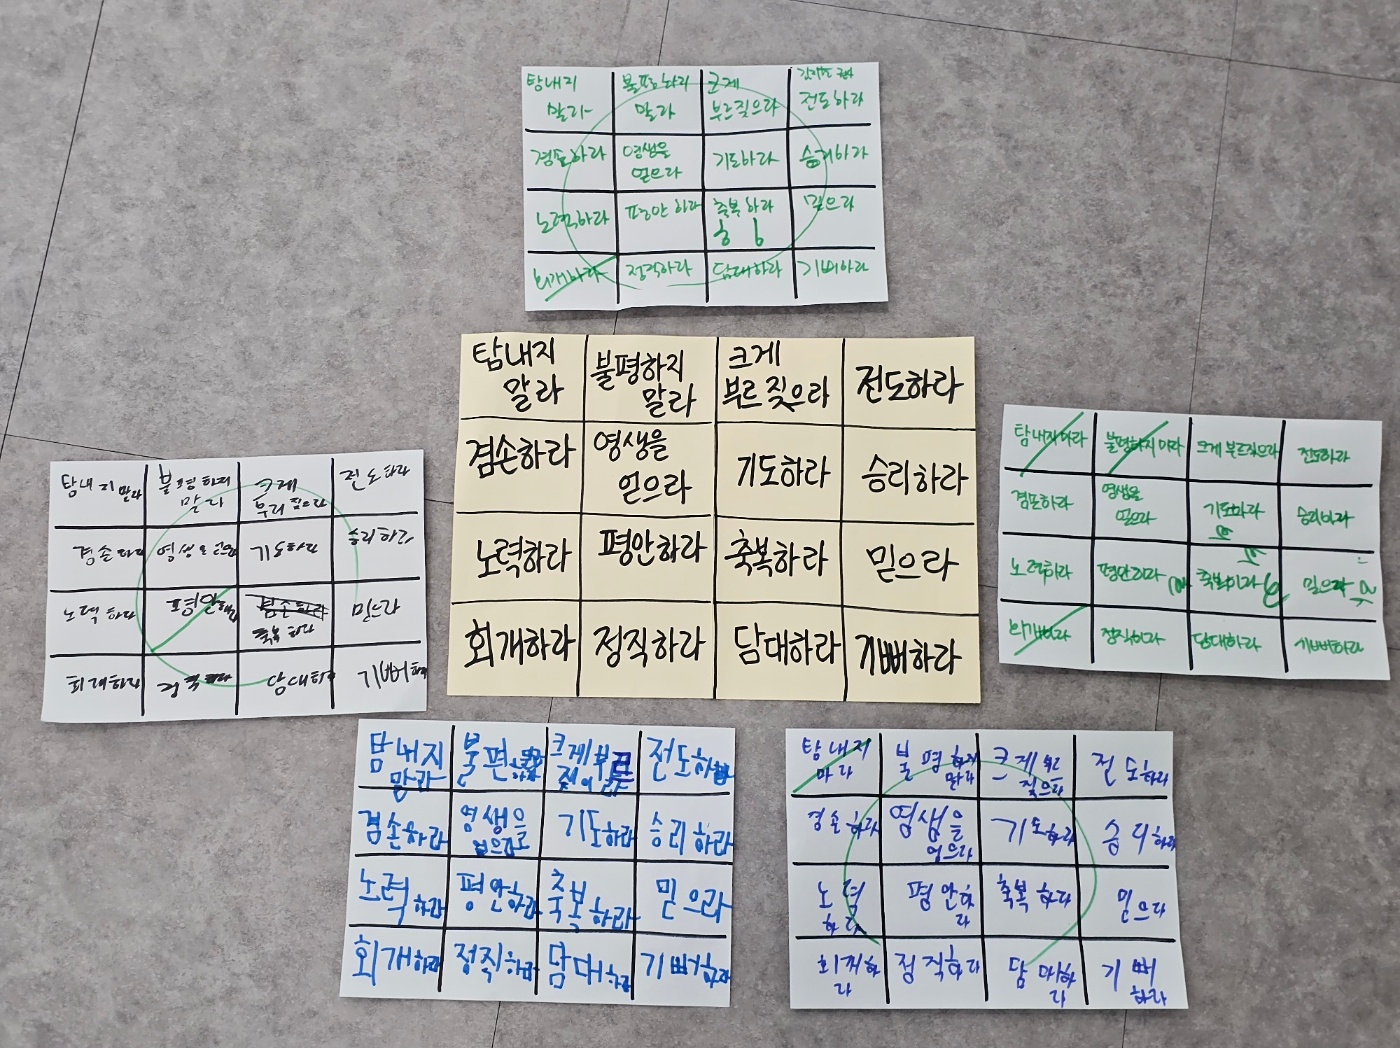 탐내지
말라
불평하라
말라
크게
부르짖으라
전도하라
겸손하라
영생을
얻으라
기도하라
승리하라
노력하라
평안하라
축복하라
믿으라
회개하라
정직하라
담대하라
기뻐하라
탐내지
말라
불평하지
말라
크게
부르짖으라
전도하라
겸손하라
영생을
얻으라
기도하라
승리하라
노력하라
평안하라
축복하라
믿으라
회개하라
정직하라
담대하라
기뻐하라
탐내지 말라
불평하지
말라
크게
부리짖으라
전도하라
겸손하라
기도하라
승리하라
노력하라
평안하라
겸손하라
축복하라
믿으라
회개하라
정직하라
담대하라
기뻐하라
탐내지마라
불평하지마라
크게 부르짖으라
전도하라
겸손하라
영생을
얻으라
기도하라
승리하라
노력하라
평안하라
축복하라
믿으라
회개하라
정직하라
담대하라
기뻐하라
탐내지
말라
불편
크게 부르
전도하라
겸손하라
영생을
얻으라
기도하라
승리하라
노력하라
평안하라
축복하라
믿으라
회개하라
정직하라
담대하라
기뻐하라
탐내지
마라
불평하지
말라
크게 부르
짖으라
전도하라
겸손하라
영생을
얻으라
기도하라
승리하라
노력
하라
평안하
라
축복하라
믿으라
회개하
라
정직하라
담대하
라
기뻐
하라